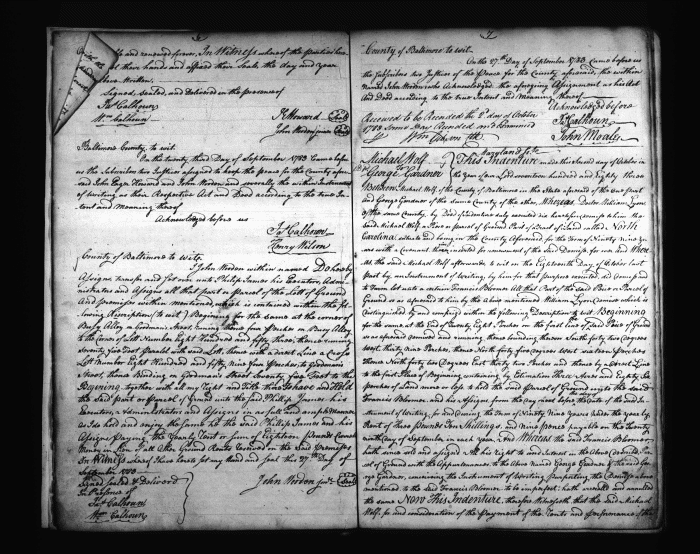 and renewed forever, In Witness whereof the parties have
set their hands and affixed their Seals the day and year
above Written.
Signed, sealed, and Delivered in the presence of
Jas Calhoun
Wm Calhoun
Howard Seal
John Worden junior Seal
Baltimore County, to wit
On the twenty third Day of September 1783 Came before
us the Subscribers two Justices assigned to keep the Peace for the County afore
said John Eager Howard and John Worden and severally the within Instrument
of Writing as their Respective Act and Deed according to the true In
tent and meaning thereof
Acknowledged before us
Jas Calhoun
Henry Wilson
County of Baltimore to wit
I John Worden within named Do hereby
Assign transfer and set over unto Philip James his Executors, Admin
istrators and Assigns all that part or Parcel of the Lott of Ground
And premises within mentioned, which is contained within the fol
lowing Description, to wit, Beginning for the same at the corner of
Busy Alley in Goodman's Street, running thence four Perches on Busy Alley
to the corner of Lott Number Eight Hundred and fifty three, thence running
seventy five foot Parallel with said Lott, thence with a direct Line a Cross
Lott Number Eight Hundred and fifty Nine four Perches to Goodmans
Street, thence Binding on Goodmans Street Seventy five foot to the
Beginning together with all my Right and Title thereto To have and Hold
the Said part or Parcel of Ground unto the said Phillip James his
Executors, Administrators and Assigns in as full and ample Manner
as I do hold and enjoy the Same he the said Phillip James and his
Assigns Paying the Yearly Rent or Sum of Eighteen Pounds Current
Money in lieu of all other Ground Rents Reserved on the said Premises
In Witness whereof I have hereto set my hand and seal this 27th Day of
September 1783
Signed sealed & Delivered
In Presence of
Jas Calhoun
Wm Calhoun
John Worden junr Seal
7
County of Baltimore to wit
On the 27th Day of September 1783 Came before us
the Subscribers two Justices of the Peace for the County aforesaid, the within
Named John Worden who Acknowledged the aforegoing Assignment as his Act
And Deed according to the true Intent and Meaning thereof
Acknowledged before
Jas Calhoun
John Moale
Received to be Recorded the 2d day of October
1783 Same day Recorded and Examined
Maryland Sc
Michael Wolf
to
George Gardner
This Indenture made this Second day of October in
the Year of our Lord seventeen hundred and Eighty three
Between Michael Wolf of the County of Baltimore in the State aforesaid of the one part
and George Gardner of the same County of the other Whereas Doctor William Lyon
of the same County, by Deed of Indenture duly executed did heretofore convey to him the
said Michael Wolf a Part or parcel of Ground Part of a tract of Land called North
Carolina situate and lying in the County Aforesaid for the Term of Ninety nine years
with a Covenant therein inserted for renewment of the said Demise for ever And Where
as the said Michael Wolf afterwards to wit on the Eighteenth Day of October last
past by an Instrument of Writing, by him for that purpose executed, did Demise and
to Farm let unto a certain Francis Bloomer All that Part of the said Part or Parcel of
Ground so as aforesaid to him by the Above mentioned William Lyon Demised which is
distinguished by and comprized within the following Description, to wit Beginning
for the same at the End of Twenty Eight Perches on the first line of said Parcel of Ground
so as aforesaid demised and running thence bounding thereon South forty two degrees
West thirty Nine Perches thence North forty five degrees West sixteen Perches
thence North forty two Degrees East thirty two Perches and thence by a direct Line
to the first Place of Beginning containing by Estimation Three Acres and Eighty Six
perches of Land more or less to hold the said Parcel of Ground unto the said
Francis Bloomer and his Assigns from the day next before the Date of the said In
strument of Writing, for and During the Term of Ninety Nine Years under the yearly
Rent of three Pounds Ten Shillings, and Nine Pence payable on the Twenty
ninth day of September in each year, And Whereas the said Francis Bloomer
hath since sold and assigned All his Right to and Interest in the Above described Par
cel of Ground with the Appurtenances to the Above Named George Gardner & the said Geo
rge Gardner, conceiving the Instrument of Writing Purporting the Demise above
mentioned to the said Francis Bloomer to be imperfect hath vacated and cancelled
the same Now This Indenture, therefore Witnesseth that the said Michael
Wolf, for and consideration of the Payment of the Rents and performance of the